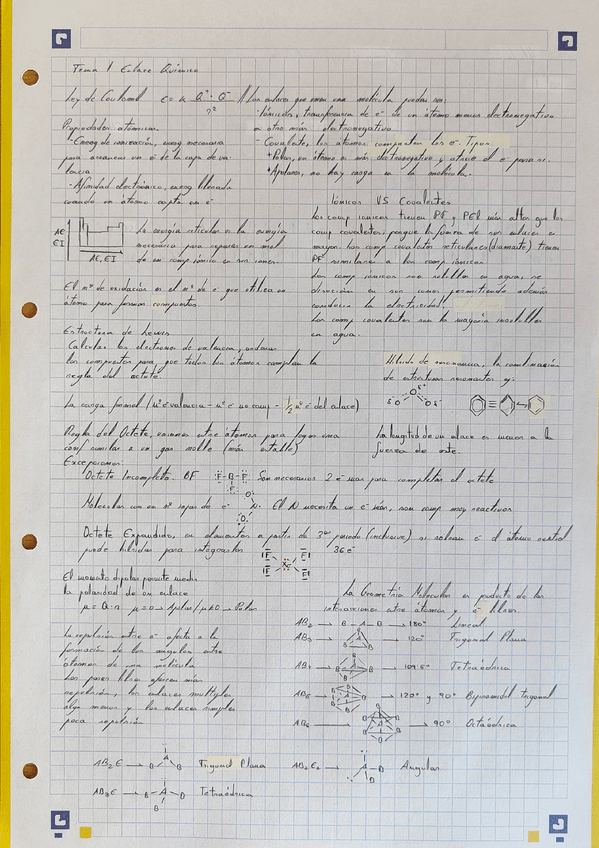 Tema 1 Enlace Químico
Ley de Coulomb E = K Q⁺ · Q⁻ / r² // Los enlaces que unen una molécula pueden ser:
- Iónicos, transferencia de e⁻ de un átomo menos electronegativo
a otro más electronegativo
- Covalente, los átomos comparten los e⁻. Tipos:
* Polar, un átomo es más electronegativo y atrae el e⁻ para si.
* Apolares, no hay carga en la molécula.
Propiedades atómicas
- Energ de ionización, energ necesaria
para arrancar un e⁻ de la capa de va-
lencia
- Afinidad electrónica, energ liberada
cuando un átomo capta un e⁻
AE
EI
AE, EI
La energía reticular es la energía
necesaria para separar un mol
de un comp iónico en sus iones.
El nº de oxidación es el nº de e⁻ que utiliza un
átomo para formar compuestos
Iónicos VS Covalentes
Los comp iónicos tienen PF y PEb más altos que los
comp covalentes, porque la fuerza de sus enlaces es
mayor. Los comp covalentes reticulares (diamante) tienen
PF similares a los comp iónicos
Los comp iónicos son solubles en agua, se
disocian en sus iones permitiendo además
conducir la electricidad.
Los comp covalentes son la mayoría insolubles
en agua.
Estructura de Lewis
Calcular los electrones de valencia, ordenar
los compuestos para que todos los átomos cumplan la
regla del octeto.
La carga formal (nº e⁻ valencia - nº e⁻ no comp - 1/2 nº e⁻ del enlace)
Híbrido de resonancia, la combinación
de estructuras resonantes ej:
δ⁻ O O δ⁺ O δ⁻
La longitud de un enlace es menor a la
fuerza de este.
Regla del Octeto, uniones entre átomos para lograr una
conf similar a un gas noble (más estable)
Excepciones:
Octeto Incompleto. BF F - B - F Son necesarios 2 e⁻ más para completar el octeto
F
Moleculas con un nº impar de e⁻ N· El N necesita un e⁻ más, son comp muy reactivos
O
O
Octeto Expandido, en elementos a partir de 3er periodo (inclusive) si rodean e⁻ el átomo central
puede hibridar para integrarlos 36 e⁻
F F
Xe
F F
El momento dipolar permite medir
la polaridad de un enlace
μ = Q · r μ = 0 → Apolar / μ ≠ 0 → Polar
La repulsión entre e⁻ afecta a la
formación de los ángulos entre
átomos de una molécula
Los pares libres ejercen más
repulsión, los enlaces multiples
algo menos y los enlaces simples
poca repulsión
La Geometría Molecular es producto de las
interacciones entre átomos y e⁻ libres.
AB₂ → B - A - B → 180° Lineal
AB₃ → → 120° Trigonal Plana
AB₄ → → 109.5° Tetraédrica
AB₅ → → 120° y 90° Bipiramidal trigonal
AB₆ → → 90° Octaédrica
AB₂E → B A B Trigonal Plana
AB₂E₂ → A B B Angular
AB₃E → B A B B Tetraédrica